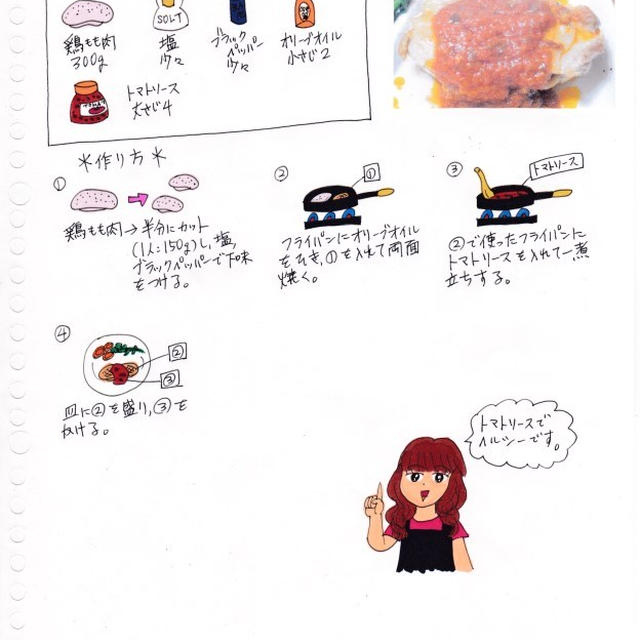 SOLT
鶏もも肉
300g
塩
少々
ブラック
ペッパー
少々
オリーブオイル
小さじ2
トマトソース
大さじ4
*作り方*
①
鶏もも肉→半分にカット
(1人:150g)し、塩、
ブラックペッパーで下味
をつける。
②
①
フライパンにオリーブオイル
をそそぎ、①を入れて両面
焼く。
③
トマトソース
②で使ったフライパンに
トマトソースを入れて一煮
立ちする。
④
②
③
皿に②を盛り、③を
かける。
トマトソースで
ヘルシーです。